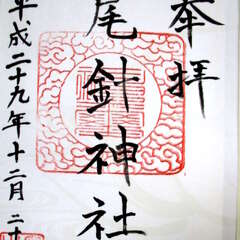 奉拝
尾針神社
平成二十九年十二月二十